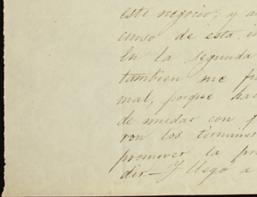 este negocio; y a
curso de esta in
En la segunda
tambien me fu
mal, porque hac
de mudar con f
ron los términos
promover la pro
dir.—Y llego a